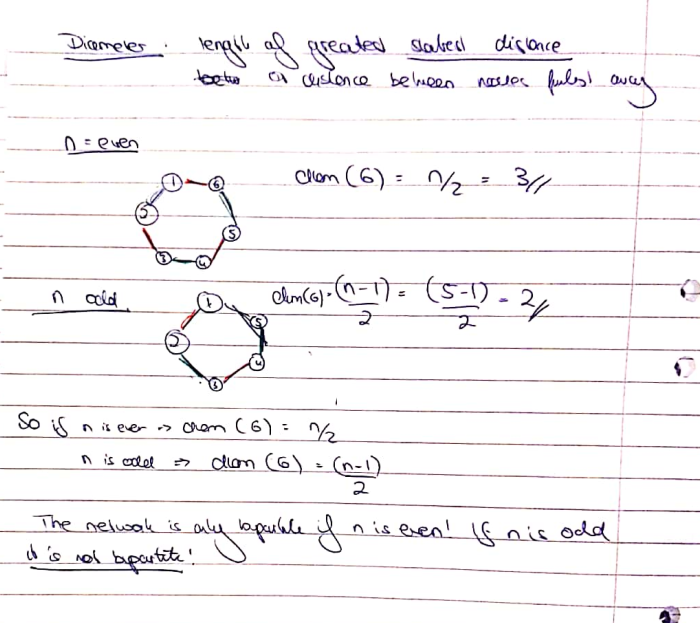 Diameter. length of greatest shortest distance
or distance between nodes furthest away
n = even
1 6
2 5
3 4
diam (G) = n/2 = 3//
n odd
1
2 5
4
3
diam(G) = (n-1)/2 = (5-1)/2 = 2//
So if n is even => diam (G) = n/2
n is odd => diam (G) = (n-1)/2
The network is only bipartite if n is even! If n is odd
it is not bipartite!